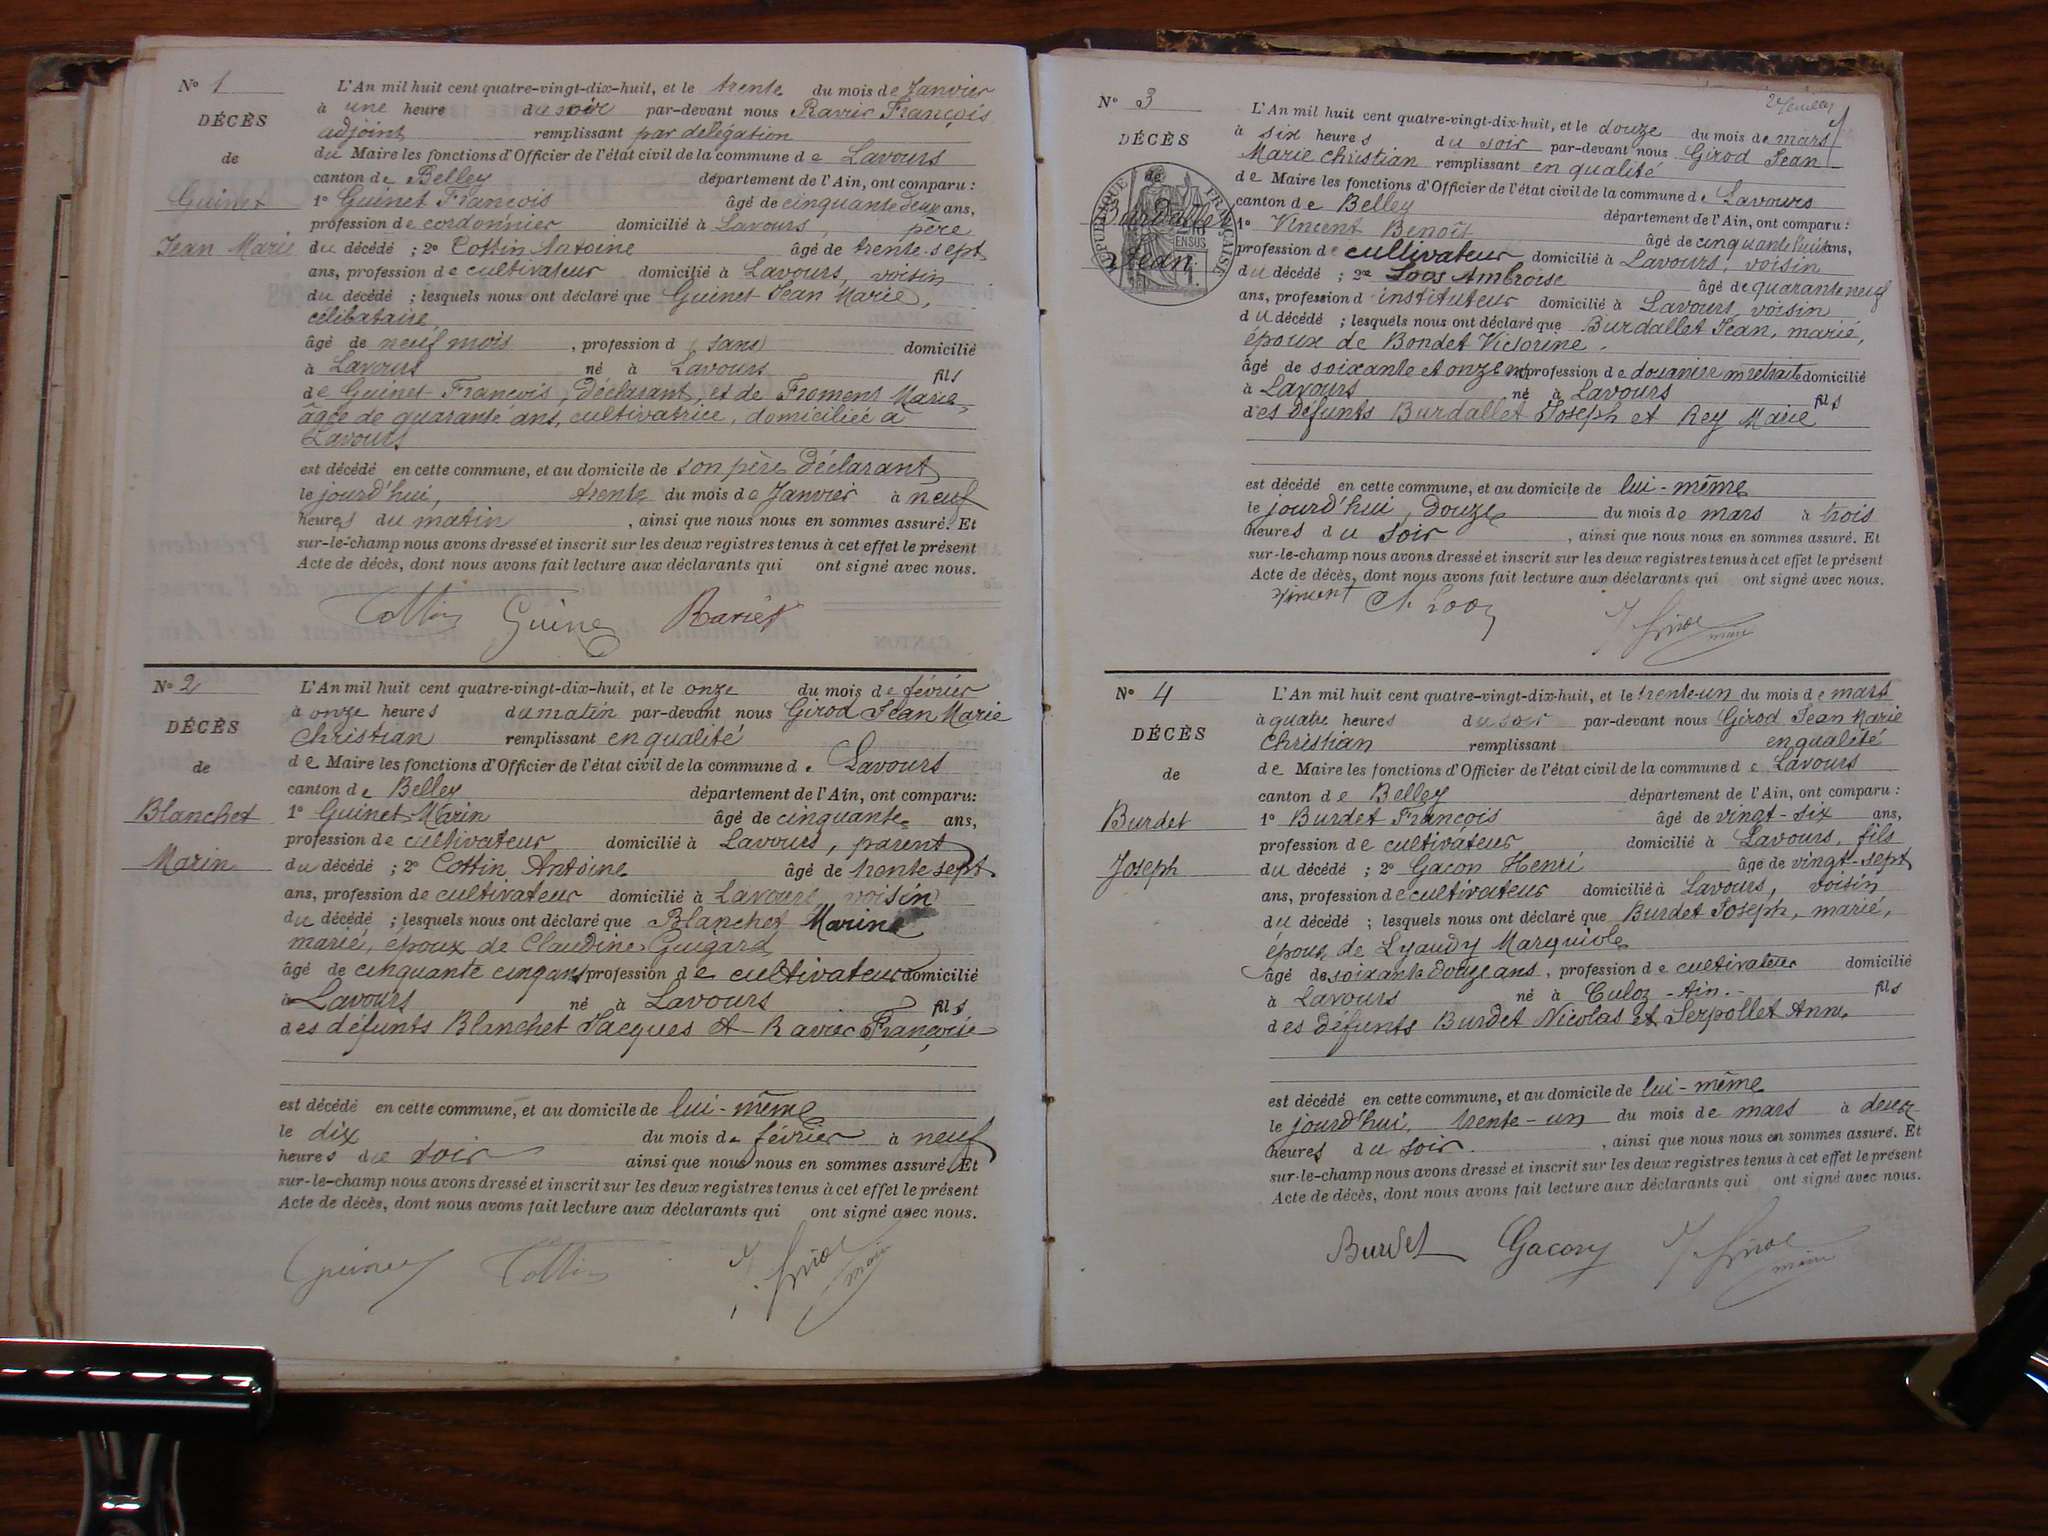 N° 1
DÉCÈS
de
Guinet
Jean Marie
L'An mil huit cent quatre-vingt-dix-huit, et le trente du mois de Janvier
à une heure du soir par-devant nous Ravier François
adjoint remplissant par délégation
du Maire les fonctions d'Officier de l'état civil de la commune de Lavours
canton de Belley département de l'Ain, ont comparu :
1° Guinet François âgé de cinquante deux ans,
profession de cordonnier domicilié à Lavours, père
du décédé ; 2° Cottin Antoine âgé de trente-sept
ans, profession de cultivateur domicilié à Lavours, voisin
du décédé ; lesquels nous ont déclaré que Guinet Jean Marie,
célibataire
âgé de neuf mois, profession d sans domicilié
à Lavours né à Lavours fils
de Guinet François, déclarant, et de Froment Marie,
âgée de quarante ans, cultivatrice, domiciliée à
Lavours
est décédé en cette commune, et au domicile de son père déclarant
le jourd'hui, trente du mois de Janvier à neuf
heures du matin, ainsi que nous nous en sommes assuré. Et
sur-le-champ nous avons dressé et inscrit sur les deux registres tenus à cet effet le présent
Acte de décès, dont nous avons fait lecture aux déclarants qui ont signé avec nous.
Cottin Guinet Ravier
N° 2
DÉCÈS
de
Blanchet
Marin
L'An mil huit cent quatre-vingt-dix-huit, et le onze du mois de février
à onze heures du matin par-devant nous Girod Jean Marie
Christian remplissant en qualité
de Maire les fonctions d'Officier de l'état civil de la commune de Lavours
canton de Belley département de l'Ain, ont comparu:
1° Guinet Marin âgé de cinquante ans,
profession de cultivateur domicilié à Lavours, parent
du décédé ; 2° Cottin Antoine âgé de trente sept
ans, profession de cultivateur domicilié à Lavours, voisin
du décédé ; lesquels nous ont déclaré que Blanchet Marin
marié, époux de Claudine Guigard
âgé de cinquante cinq ans profession de cultivateur domicilié
à Lavours né à Lavours fils
des défunts Blanchet Jacques et Ravier Françoise
est décédé en cette commune, et au domicile de lui-même
le dix du mois de février à neuf
heures du soir ainsi que nous nous en sommes assuré. Et
sur-le-champ nous avons dressé et inscrit sur les deux registres tenus à cet effet le présent
Acte de décès, dont nous avons fait lecture aux déclarants qui ont signé avec nous.
Guinet Cottin J. Girod maire
2e feuillet
N° 3
DÉCÈS
de
Burdallet
Jean
RÉPUBLIQUE FRANÇAISE
L'An mil huit cent quatre-vingt-dix-huit, et le douze du mois de mars
à six heures du soir par-devant nous Girod Jean
Marie Christian remplissant en qualité
de Maire les fonctions d'Officier de l'état civil de la commune de Lavours
canton de Belley département de l'Ain, ont comparu :
1° Vincent Benoît âgé de cinquante huit ans,
profession de cultivateur domicilié à Lavours, voisin
du décédé ; 2° Loos Ambroise âgé de quarante neuf
ans, profession d'instituteur domicilié à Lavours, voisin
du décédé ; lesquels nous ont déclaré que Burdallet Jean, marié,
époux de Bondet Victorine.
âgé de soixante et onze ans, profession de douanier en retraite domicilié
à Lavours né à Lavours fils
des défunts Burdallet Joseph et Rey Marie
est décédé en cette commune, et au domicile de lui-même
le jourd'hui, douze du mois de mars à trois
heures du soir, ainsi que nous nous en sommes assuré. Et
sur-le-champ nous avons dressé et inscrit sur les deux registres tenus à cet effet le présent
Acte de décès, dont nous avons fait lecture aux déclarants qui ont signé avec nous.
Vincent A. Loos J. Girod maire
N° 4
DÉCÈS
de
Burdet
Joseph
L'An mil huit cent quatre-vingt-dix-huit, et le trente-un du mois de mars
à quatre heures du soir par-devant nous Girod Jean Marie
Christian remplissant en qualité
de Maire les fonctions d'Officier de l'état civil de la commune de Lavours
canton de Belley département de l'Ain, ont comparu :
1° Burdet François âgé de vingt-six ans,
profession de cultivateur domicilié à Lavours, fils
du décédé ; 2° Gacon Henri âgé de vingt-sept
ans, profession de cultivateur domicilié à Lavours, voisin
du décédé ; lesquels nous ont déclaré que Burdet Joseph, marié,
époux de Lyaudy Marguiole
âgé de soixante douze ans, profession de cultivateur domicilié
à Lavours né à Culoz - Ain. - fils
des défunts Burdet Nicolas et Serpollet Anne
est décédé en cette commune, et au domicile de lui-même
le jourd'hui, trente-un du mois de mars à deux
heures du soir., ainsi que nous nous en sommes assuré. Et
sur-le-champ nous avons dressé et inscrit sur les deux registres tenus à cet effet le présent
Acte de décès, dont nous avons fait lecture aux déclarants qui ont signé avec nous.
Burdet Gacon J. Girod maire